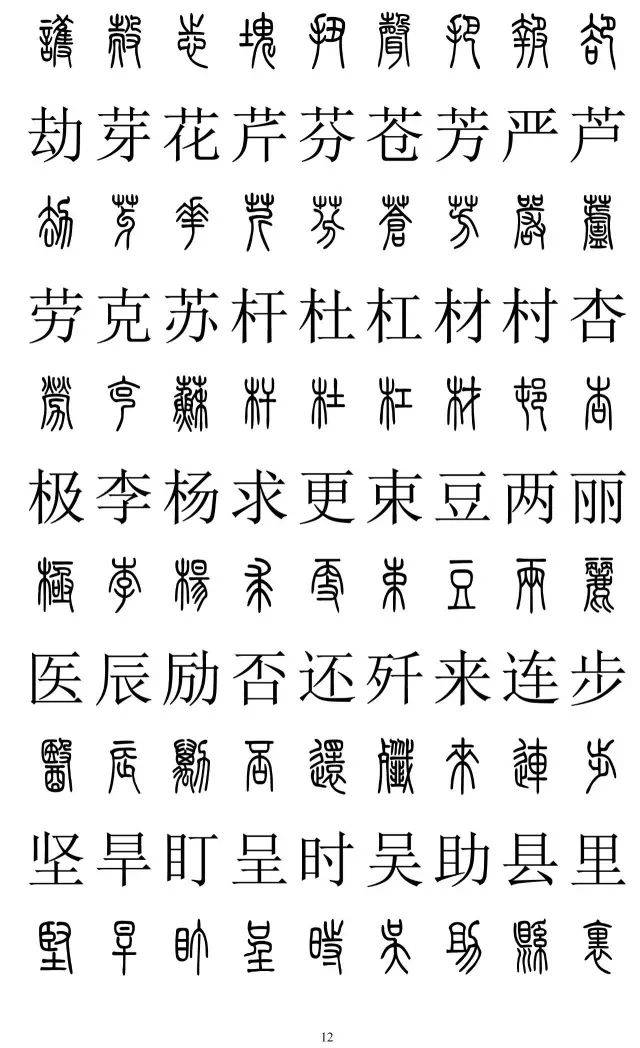 護殼志塊扭聲把報卻
劫芽花芹芬苍芳严芦
劫芽華芹芬蒼芳嚴蘆
劳克苏杆杜杠材村杏
勞克蘇杆杜杠材邨杏
极李杨求更束豆两丽
極李楊求更束豆兩麗
医辰励否还歼来连步
醫辰勵否還殲來連步
坚旱盯呈时吴助县里
堅旱盯呈時吳助縣裏
12